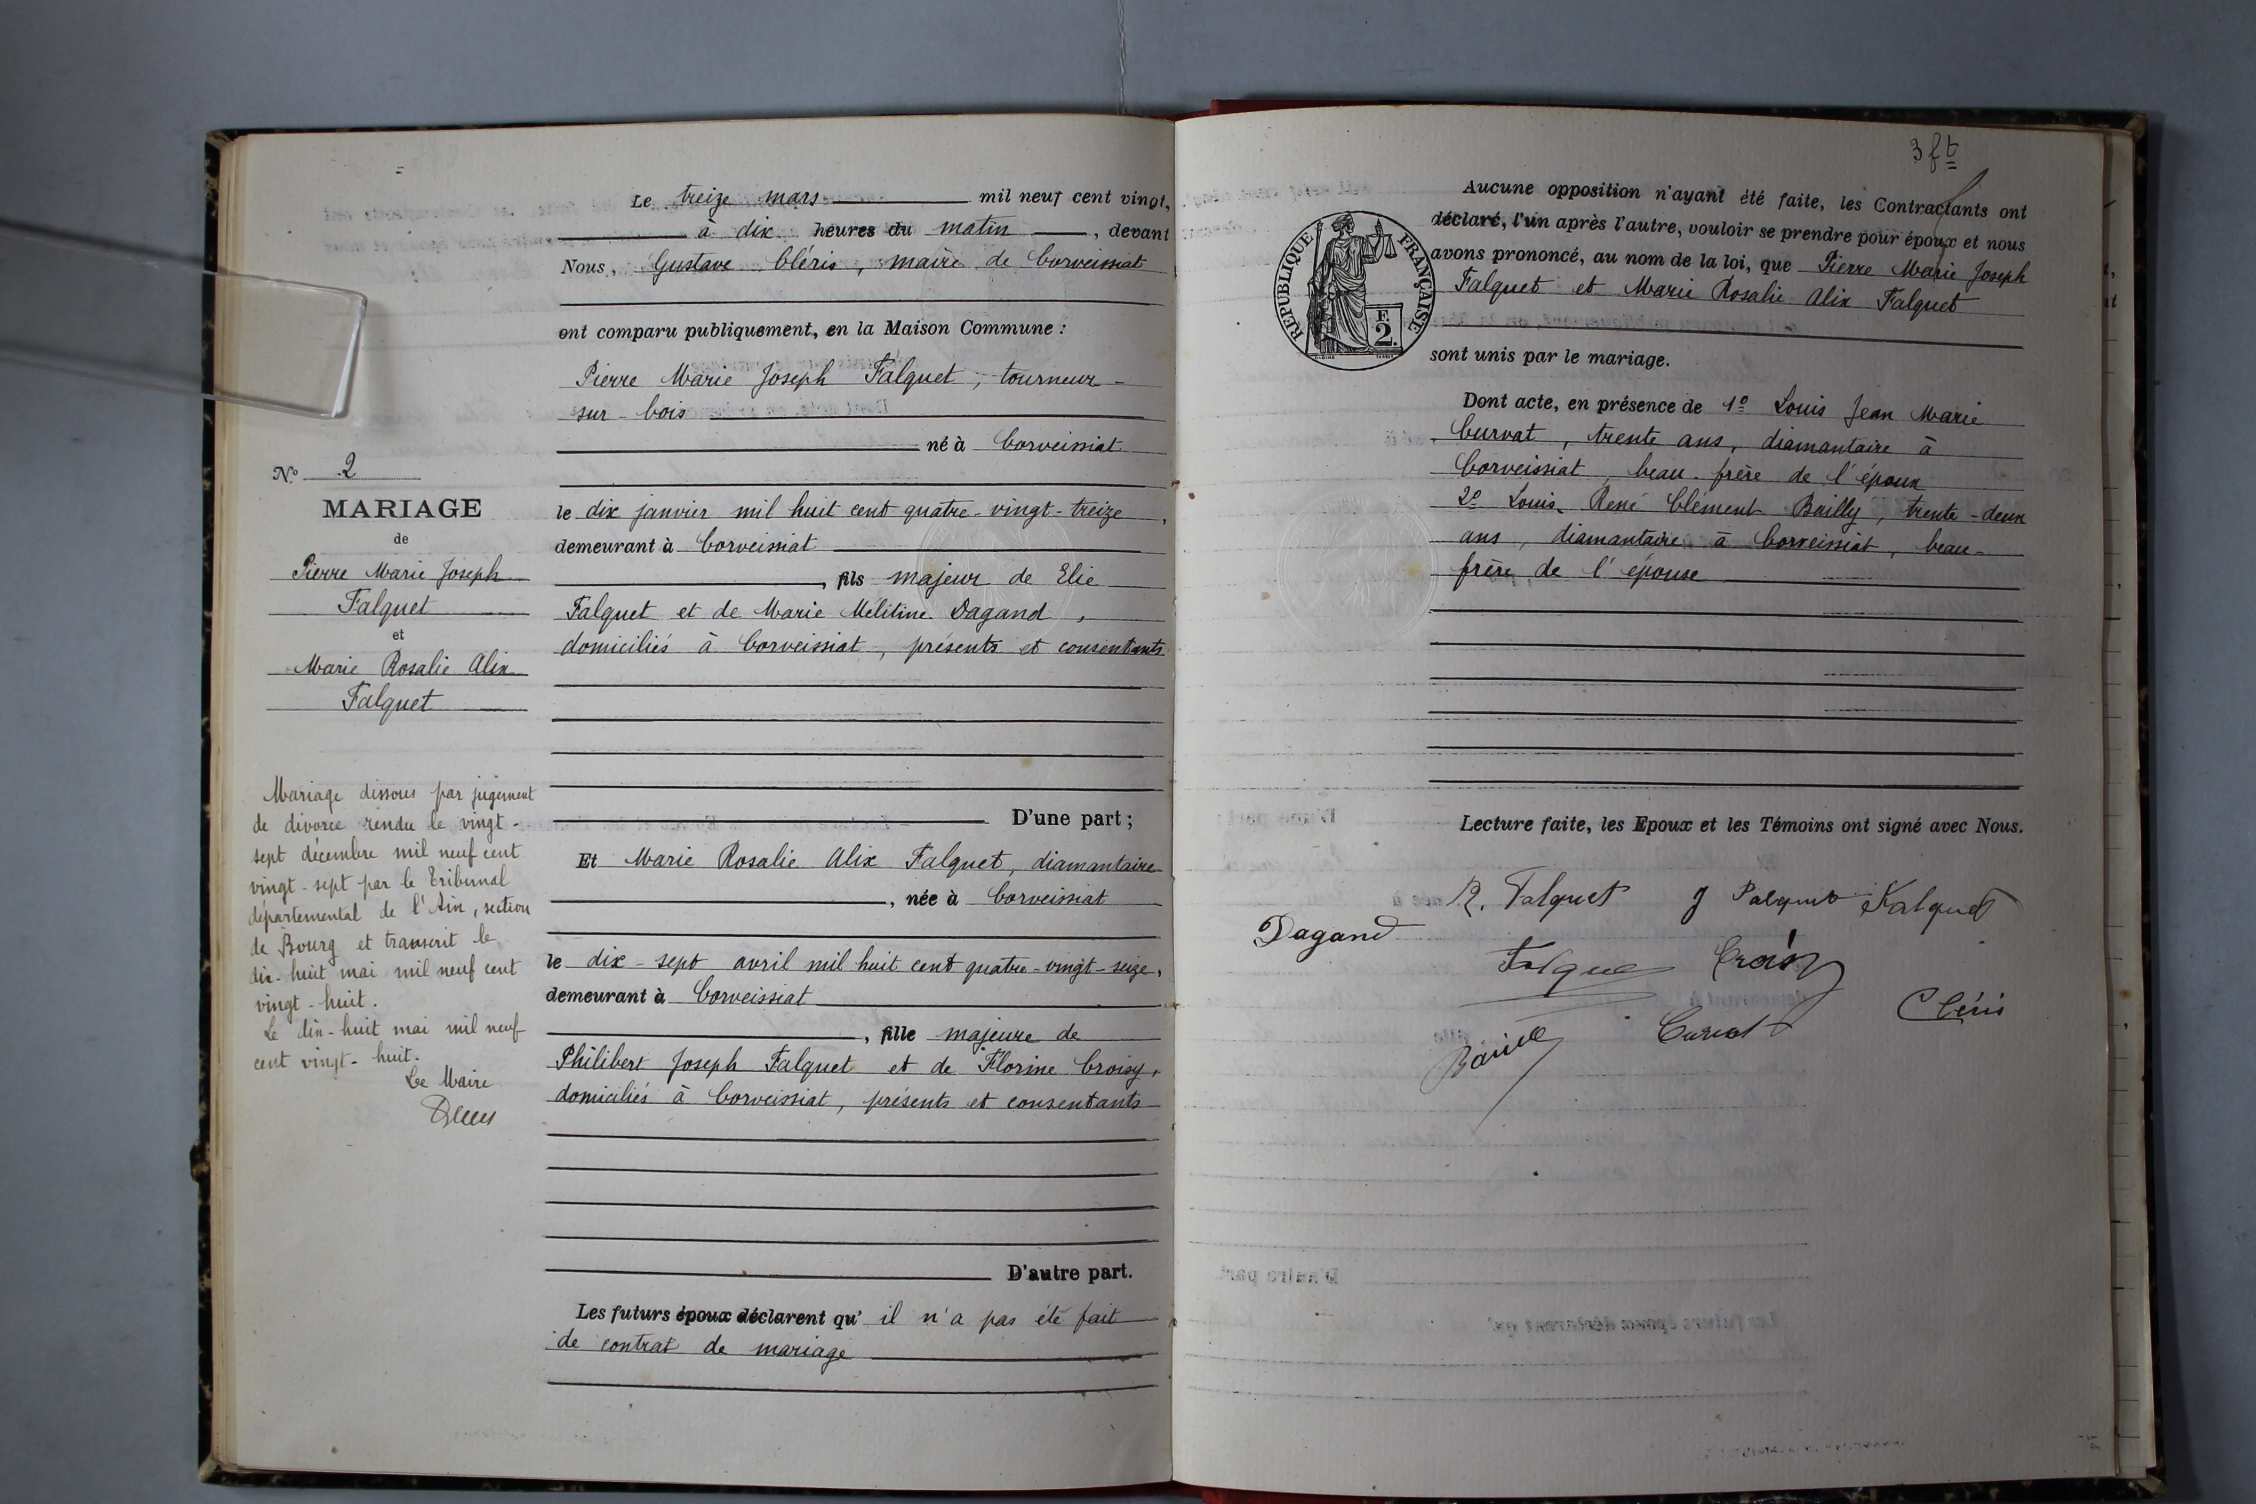 Le treize mars mil neuf cent vingt,
à dix heures du matin, devant
Nous, Gustave Cléris, maire de Corveissiat
ont comparu publiquement, en la Maison Commune :
Pierre Marie Joseph Falquet, tourneur-
sur-bois
né à Corveissiat
le dix janvier mil huit cent quatre-vingt-treize,
demeurant à Corveissiat
, fils majeur de Elie
Falquet et de Marie Mélitine Dagand,
domiciliés à Corveissiat, présents et consentants
D'une part ;
Et Marie Rosalie Alix Falquet, diamantaire
, née à Corveissiat
le dix-sept avril mil huit cent quatre-vingt-seize,
demeurant à Corveissiat
, fille majeure de
Philibert Joseph Falquet et de Florine Croisy,
domiciliés à Corveissiat, présents et consentants
D'autre part.
Les futurs époux déclarent qu' il n'a pas été fait
de contrat de mariage
N° 2
MARIAGE
de
Pierre Marie Joseph
Falquet
et
Marie Rosalie Alix
Falquet
Mariage dissous par jugement
de divorce rendu le vingt-
sept décembre mil neuf cent
vingt-sept par le Tribunal
départemental de l'Ain, section
de Bourg et transcrit le
dix-huit mai mil neuf cent
vingt-huit.
Le dix-huit mai mil neuf
cent vingt-huit.
Le Maire
3 ft
Aucune opposition n'ayant été faite, les Contractants ont
déclaré, l'un après l'autre, vouloir se prendre pour époux et nous
avons prononcé, au nom de la loi, que Pierre Marie Joseph
Falquet et Marie Rosalie Alix Falquet
sont unis par le mariage.
RÉPUBLIQUE FRANÇAISE
F.
2.
Dont acte, en présence de 1° Louis Jean Marie
Curvat, trente ans, diamantaire à
Corveissiat, beau-frère de l'époux
2° Louis René Clément Bailly, trente-deux
ans, diamantaire à Corveissiat, beau-
frère de l'épouse
Lecture faite, les Epoux et les Témoins ont signé avec Nous.
R. Falquet J Falquet Falquet
Dagand
Falquet Croisy
Cléris
Bailly Curvat